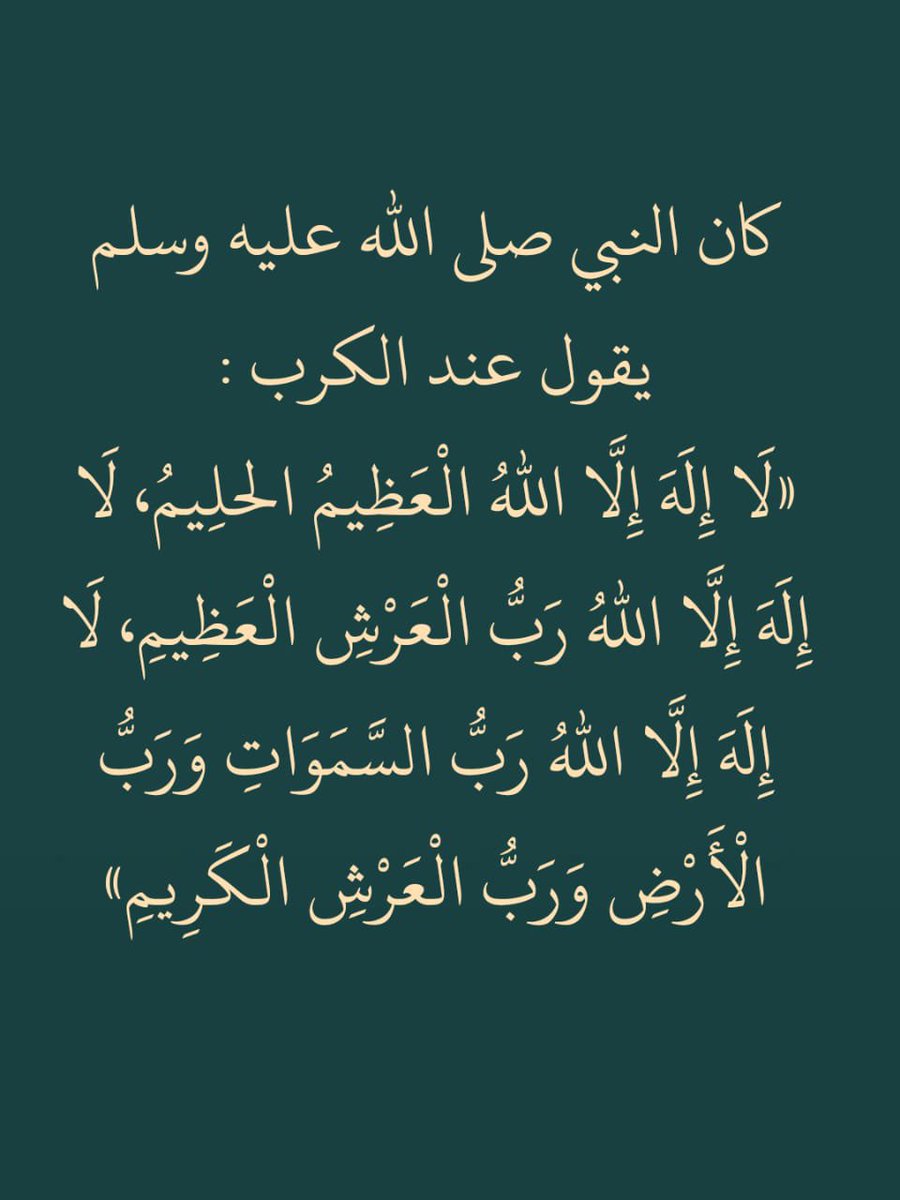 كان النبي صلى الله عليه وسلم
يقول عند الكرب :
«لَا إِلَهَ إِلَّا اللهُ الْعَظِيمُ الحلِيمُ، لَا
إِلَهَ إِلَّا اللهُ رَبُّ الْعَرْشِ الْعَظِيمِ، لَا
إِلَهَ إِلَّا اللهُ رَبُّ السَّمَوَاتِ وَرَبُّ
الْأَرْضِ وَرَبُّ الْعَرْشِ الْكَرِيمِ»